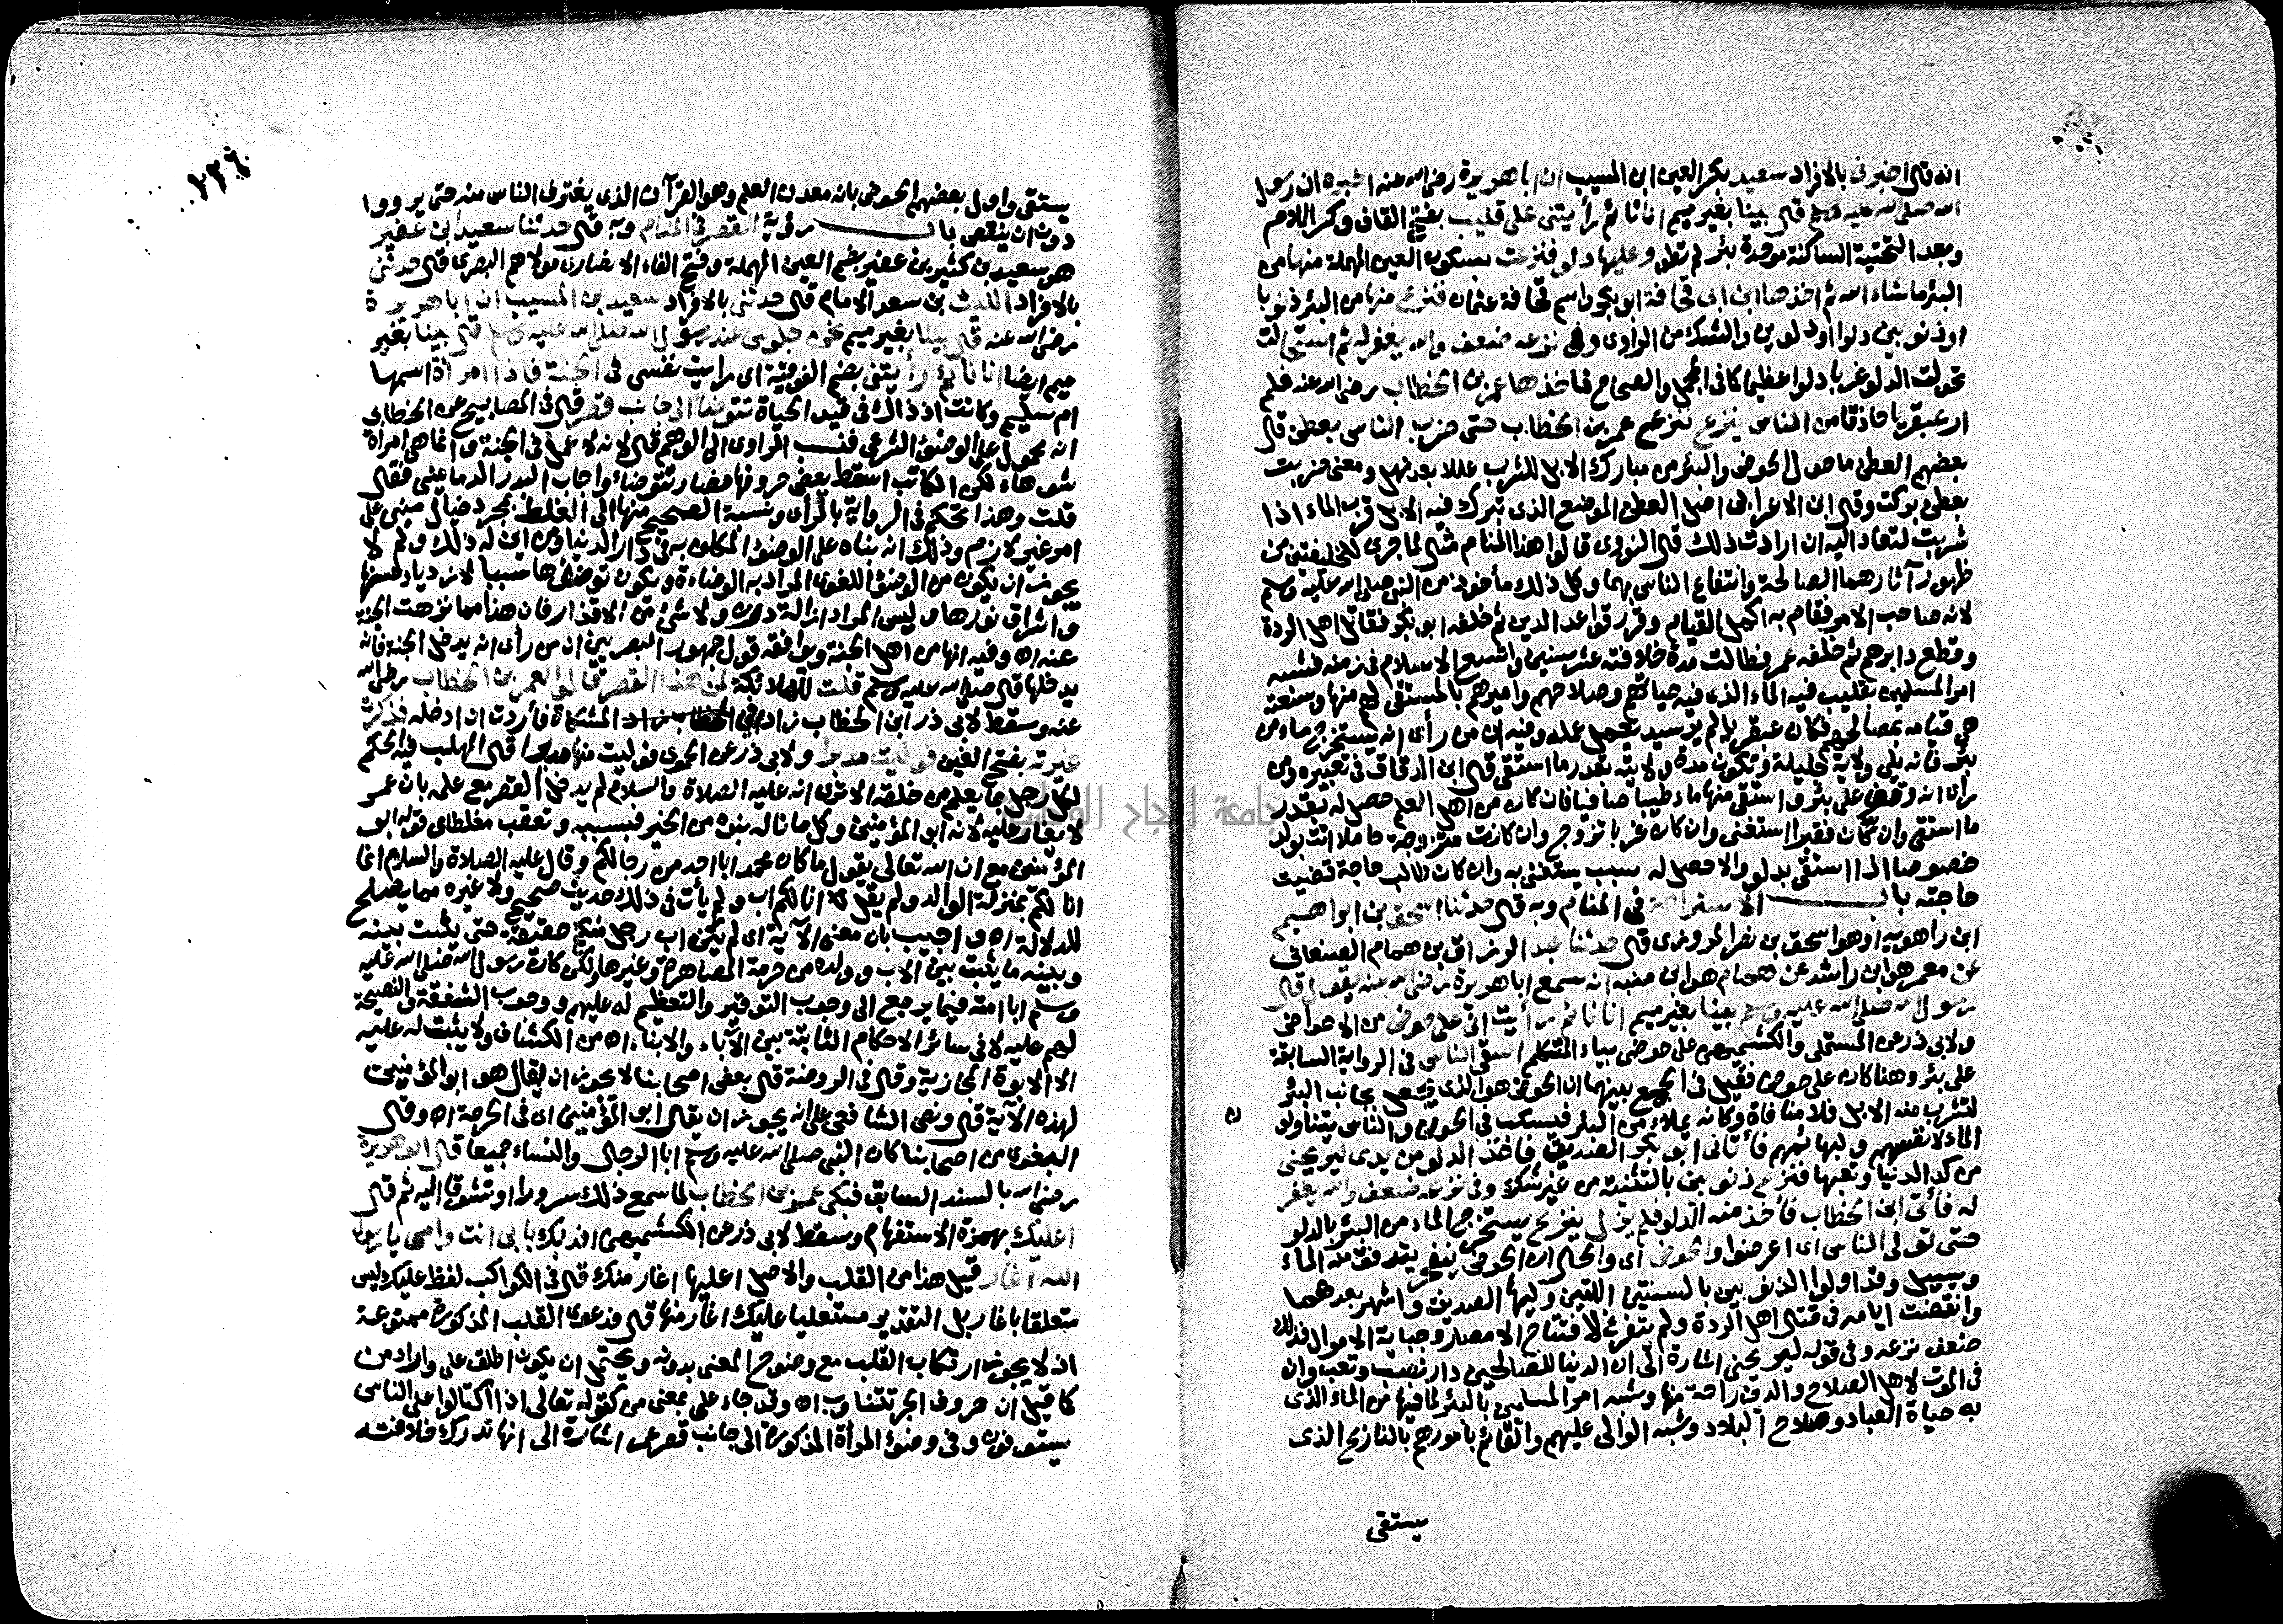 انه قال اخبرني بالافراد سعيد بكسر العين ابن المسيب ان ابا هريرة رضي الله عنه اخبره ان رسول
الله صلى الله عليه وسلم قال بينا بغير ميم انا نائم رأيتني على قليب بفتح القاف وكسر اللام
وبعد التحتية الساكنة موحدة بئر لم تطو وعليها دلو فنزعت بسكون العين المهملة منها من
البئر ما شاء الله ثم اخذها ابن ابي قحافة ابو بكر واسم قحافة عثمان فنزع منها من البئر ذنوبا
او ذنوبين دلوا او دلوين والشك من الراوي وفي نزعه ضعف والله يغفر له ثم استحالت
تحولت الدلو غربا دلوا عظيما كافي المجمل والصحاح فاخذها عمر بن الخطاب رضي الله عنه فلم
ار عبقريا حاذقا من الناس ينزع نزع عمر بن الخطاب حتى ضرب الناس بعطن قال
بعضهم العطن ما حول الحوض والبئر من مبارك الابل للشرب عللا بعد نهل ومعنى ضربت
بعطن بركت وقال ابن الاعرابي اصل العطن الموضع الذي تبرك فيه الابل قرب الماء اذا
شربت لتعاد اليه ان ارادت ذلك قال النووي قالوا هذا المنام مثال لما جرى للخليفتين من
ظهور آثارهما الصالحة وانتفاع الناس بهما وكل ذلك مأخوذ من النبي صلى الله عليه وسلم
لانه صاحب الامر فقام به اكمل القيام وقرر قواعد الدين ثم خلفه ابو بكر فقاتل اهل الردة
وقطع دابرهم ثم خلفه عمر فطالت مدة خلافته عشر سنين واتسع الاسلام في زمنه فشبه
امر المسلمين بقليب فيه الماء الذي فيه حياتهم وصلاحهم واميرهم بالمستقي لهم منها وسقيه
هي قيامه بمصالحهم فكان عبقريا لم ير سيد يعمل عمله وفيه ان من رأى انه يستخرج ماء من
بئر فانه يلي ولاية جليلة وتكون مدة ولايته بقدر ما استقى قال ابن الدقاق في تعبيره ومن
رأى انه وقف على بئر واستقى منها ماء طيبا صافيا فان كان من اهل العلم حصل له بقدر
ما استقى وان كان فقيرا استغنى وان كان عزبا تزوج وان كانت متزوجة حاملا اتت بولد
خصوصا ان استقى بدلو والا حصل له سبب يستغنى به وان كان طالب حاجة قضيت
حاجته باب الاستراحة في المنام وبه قال حدثنا اسحق بن ابراهيم
ابن راهويه او هو اسحق بن نصر المروزي قال حدثنا عبد الرزاق بن همام الصنعاني
عن معمر هو ابن راشد عن همام هو ابن منبه انه سمع ابا هريرة رضي الله عنه يقول قال
رسول الله صلى الله عليه وسلم بينا بغير ميم انا نائم رأيت اني على حوض من الاحواض
ولابي ذر عن المستملي والكشميهني على حوضي بياء المتكلم اسقي الناس في الرواية السابقة
على بئر وهنا كان على حوض فقيل في الجمع بينهما ان الحوض هو الذي يجعل بجانب البئر
لتشرب منه الابل فلا منافاة وكانه يملاء من البئر فيسكب في الحوض والناس يتناولو
ن
الماء لانفسهم ولبهائمهم فأتاني ابو بكر الصديق فاخذ الدلو من يدي ليريحني
من كد الدنيا وتعبها فنزع ذنوبين بالتثنية من غير شك وفي نزعه ضعف والله يغفر
له فأتى ابن الخطاب فأخذ منه الدلو فلم يزل ينزع يستخرج الماء من البئر بالدلو
حتى تولى الناس اي اعرضوا والحوض اي والحال ان الحوض يتفجر يتدفق منه الماء
ويسيل وقد اولوا الذنوبين بالسنتين اللتين وليها الصديق واشهر بعدهما
وانقضت ايامه في قتال اهل الردة ولم يتفرغ لافتتاح الامصار وجباية الاموال فذلك
ضعف نزعه وفي قوله ليريحني اشارة الى ان الدنيا للصالحين دار نصب وتعب وان
في الموت لاهل الصلاح والدين راحة منها وشبه امر المسلمين بالبئر لما فيها من الماء الذي
به حياة العباد وصلاح البلاد وشبه الوالي عليهم والقائم بأمورهم بالنازع الذي
يستقي
٢٢٦
يستقي واول بعضهم الحوض بانه معدن العلم وهو القرآن الذي يغترف الناس منه حتى يرووا
دون ان ينقص باب رؤية القصر في المنام وبه قال حدثنا سعيد ابن عفير
هو سعيد بن كثير بن عفير بضم العين المهملة وفتح الفاء الانصاري مولاهم البصري قال حدثني
بالافراد الليث بن سعد الامام قال حدثني بالافراد سعيد بن المسيب ان ابا هريرة
رضي الله عنه قال بينا بغير ميم نحن جلوس عند رسول الله صلى الله عليه وسلم قال بينا بغير
ميم ايضا انا نائم رأيتني بضم الفوقية اي رأيت نفسي في الجنة فاذا امرأة اسمها
ام سليم وكانت اذ ذاك في قيد الحياة تتوضأ الى جانب قصر قال في المصابيح عن الخطابي
انه محمول على الوضوء الشرعي فنسب الراوي الى الوهم قال لانه لا عمل في الجنة وانما هي امرأة
شوهاء لكن الكاتب اسقط بعض حروفها فصار تتوضأ واجاب البدر الدماميني فقال
قلت وهذا تحكم في الرواية بالرأي ونسبة الصحيح منها الى الغلط بمجرد خيال مبني على
امر غير لازم وذلك انه بناه على الوضوء المكلف به في دار الدنيا ومن اين له ذلك ولم لا
يجوز ان يكون من الوضوء اللغوي المراد به الوضاءة ويكون توضؤها سببا لازدياد حسنها
واشراق نورها وليس المراد ازالة درن ولا شئ من الاقذار فان هذا مما نزهت الجنة
عنه اه وفيه انها من اهل الجنة ويوافقه قول جمهور البصريين ان من رأى انه يدخل الجنة فانه
يدخلها قال صلى الله عليه وسلم قلت للملائكة لمن هذا القصر قالوا لعمر بن الخطاب رضي الله
عنه وسقط لابي ذر ابن الخطاب زاد في المشكاة فأردت ان ادخله فذكرت
غيرته بفتح الغين فوليت مدبرا ولابي ذر عن الحموي فوليت منها مدبرا قال المهلب فيه الحكم
لكل رجل بما يعلم من خلقه الا ترى انه عليه الصلاة والسلام لم يدخل القصر مع علمه بان عمر
لا يغار عليه لانه ابو المؤمنين وكل ما ناله بنوه من الخير فبسببه وتعقب مغلطاي قوله ابو
المؤمنين مع ان الله تعالى يقول ما كان محمد ابا احد من رجالكم وقال عليه الصلاة والسلام انما
انا لكم بمنزلة الوالد ولم يقل انا لكم اب ولم يأت في ذلك حديث صحيح ولا غيره مما يصلح
للدلالة اه واجيب بان معنى الآية اي لم يكن اب رجل منكم حقيقة حتى يثبت بينه
وبينه ما يثبت بين الاب وولده من حرمة المصاهرة وغيرها ولكن كان رسول الله صلى الله عليه
وسلم ابا امته فيما يرجع الى وجوب التوقير والتعظيم له عليهم ووجوب الشفقة والنصيحة
لهم عليه لا في سائر الاحكام الثابتة بين الآباء والابناء اه من الكشاف ولا يثبت له عليه
الا الابوة المجازية وقال في الروضة قال بعض اصحابنا لا يجوز ان يقال هو ابو المؤمنين
لهذه الآية قال ونص الشافعي على انه يجوز ان يقال ابو المؤمنين اي في الحرمة اه وقال
البغوي من اصحابنا كان النبي صلى الله عليه وسلم ابا الرجال والنساء جميعا قال ابو هريرة
رضي الله بالسند السابق فبكى عمر بن الخطاب لما سمع ذلك سرورا وتشوقا اليه ثم قال
اعليك بهمزة الاستفهام وسقط لابي ذر عن الكشميهني افديك بابي انت وامي يا رسول
الله اغار قيل هذا من القلب والاصل اعليها اغار منك قال في الكواكب لفظ عليك ليس
متعلقا باغار بل التقدير مستعليا عليك اغار منها قال فدعوى القلب المذكورة ممنوعة
اذ لا يجوز ارتكاب القلب مع وضوح المعنى بدونه ويحتمل ان يكون اطلق على واراد من
كما قيل ان حروف الجر تتناوب اه وقد جاء على بمعنى من كقوله تعالى اذا اكتالوا على الناس
يستوفون وفي وضوء المرأة المذكورة الى جانب قصر عمر اشارة الى انها تدرك خلافته
جامعة النجاح الوطنية